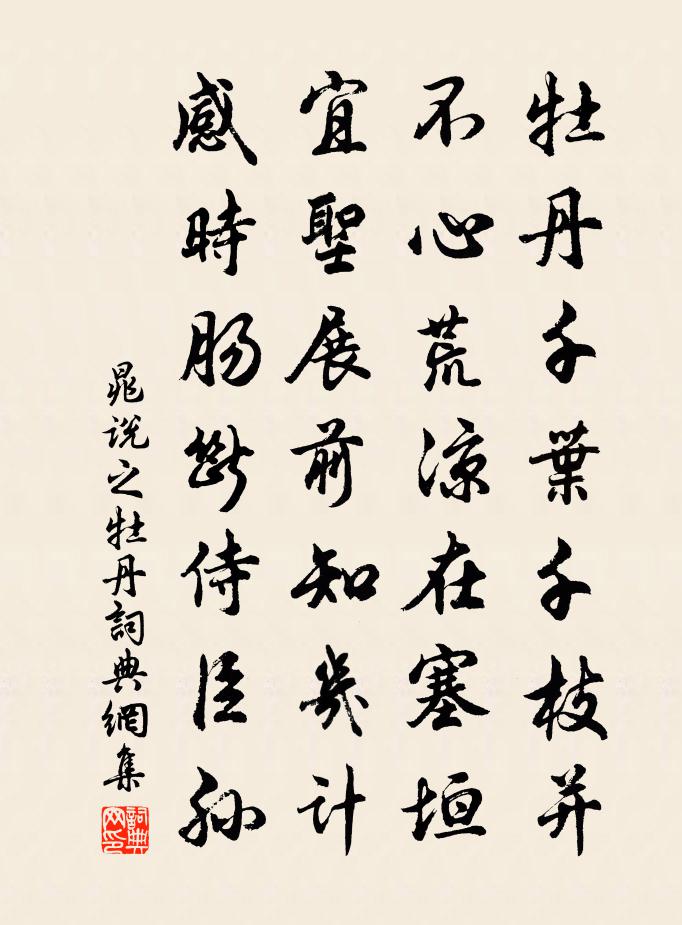 牡丹千葉千枝并
不心荒涼在塞垣
宜聖展前知幾計
感時腸斷侍臣孫
晁说之牡丹詞典網集
詞典網印